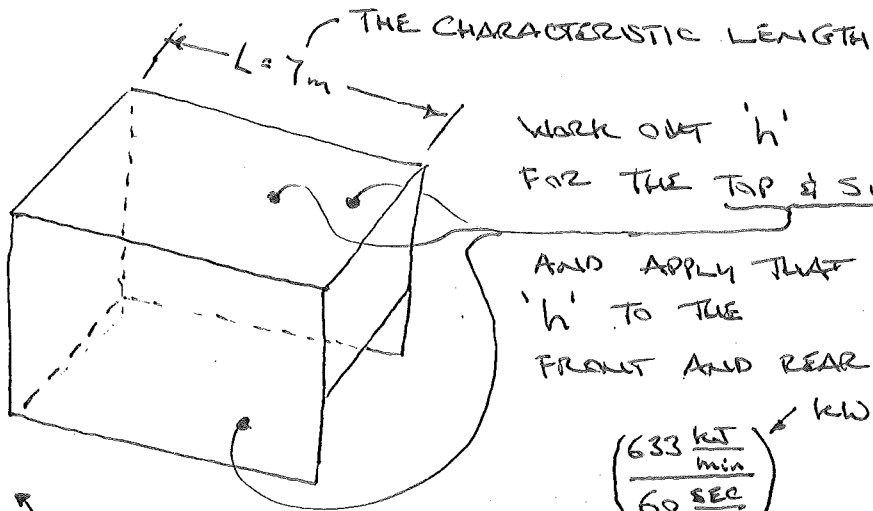 THE CHARACTERISTIC LENGTH
L = 7m
WORK OUT 'h'
FOR THE TOP &
AND APPLY THAT
'h' TO THE
FRONT AND REAR
kW
(633 kJ/min
60 SEC